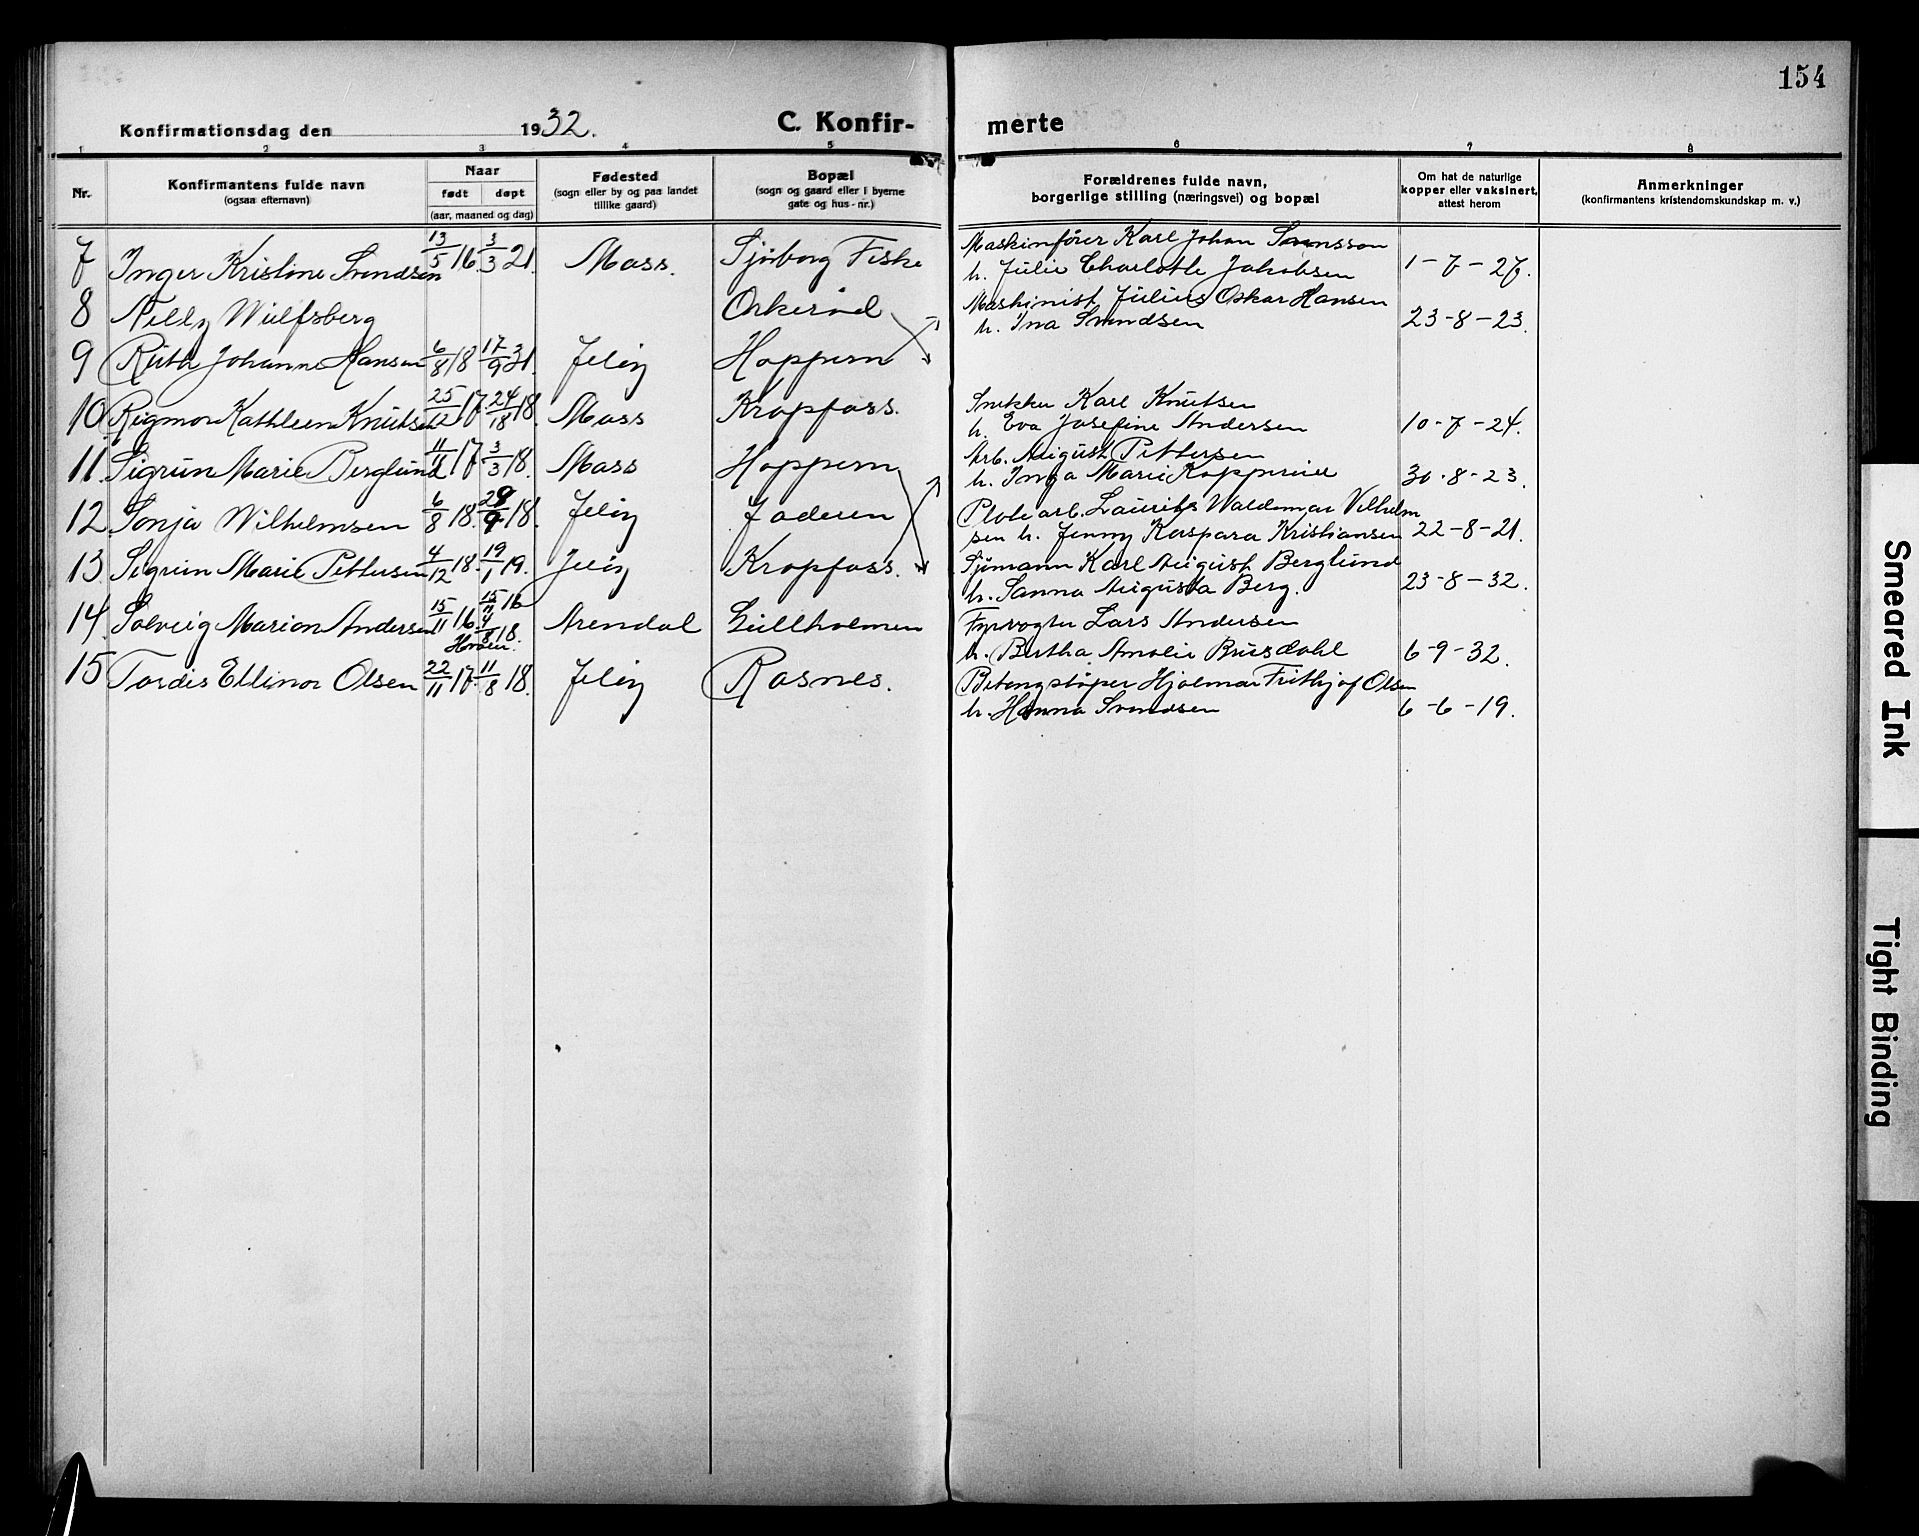 154
Konfirmationsdag den 1932. C. Konfir- merte
1 2 3 4 5 6 7 8
Nr. Konfirmantens fulde navn (ogsaa efternavn) Naar født døpt (aar, maaned og dag) Fødested (sogn eller by og paa landet tillike gaard) Bopæl (sogn og gaard eller i byerne gate og hus-nr.) Forældrenes fulde navn, borgerlige stilling (næringsvei) og bopæl Om hat de naturlige kopper eller vaksinert, attest herom Anmerkninger (konfirmantens kristendomskundskap m. v.)
7 Inger Kristine Svendsen 13/5 16. 3/3 21. Moss. Sjøborg Fiske Maskinfører Karl Johan Svensson
h. Julie Charlotte Jakobsen 1-7-27.
8 Nelly Wulfsberg Orkerød Maskinist Julius Oskar Hansen
h. Ina Svendsen 23-8-23.
9 Ruth Johanne Hansen 6/8 18 17/9 31. Jeløy Hoppern
10 Rigmor Kathleen Knutsen 25/12 17. 24/18 18. Moss Kropfoss. Snekker Karl Knutsen
h. Eva Josefine Andersen 10-7-24.
11. Sigrun Marie Berglund 11/11 17 3/3 18. Moss Hoppern Arb. August Pettersen
h. Inga Marie 30-8-23.
12. Sonja Wilhelmsen 6/8 18. 29/9 18. Jeløy Jaderen Platearb. Laurits Waldemar Vilhelm
sen h. Jenny Kaspara Kristiansen 22-8-21.
13 Sigrun Marie Pettersen 4/12 18. 19/1 19. Jeløy Kropfoss. Sjømann Karl August Berglund
h. Sanna Augusta Berg. 23-8-32.
14. Solveig Marion Andersen 15/11 16. 15/11 16 4/8 18. Arendal Gullholmen Fyrvogter Lars Andersen
h. Bertha Amalie Brusdahl 6-9-32.
15 Tordis Ellinor Olsen 22/11 17. 11/8 18. Jeløy Rosnes. Betongstøper Hjalmar Frithjof Olsen
h. Hanna Svendsen 6-6-19.
Smeared Ink
Tight Binding